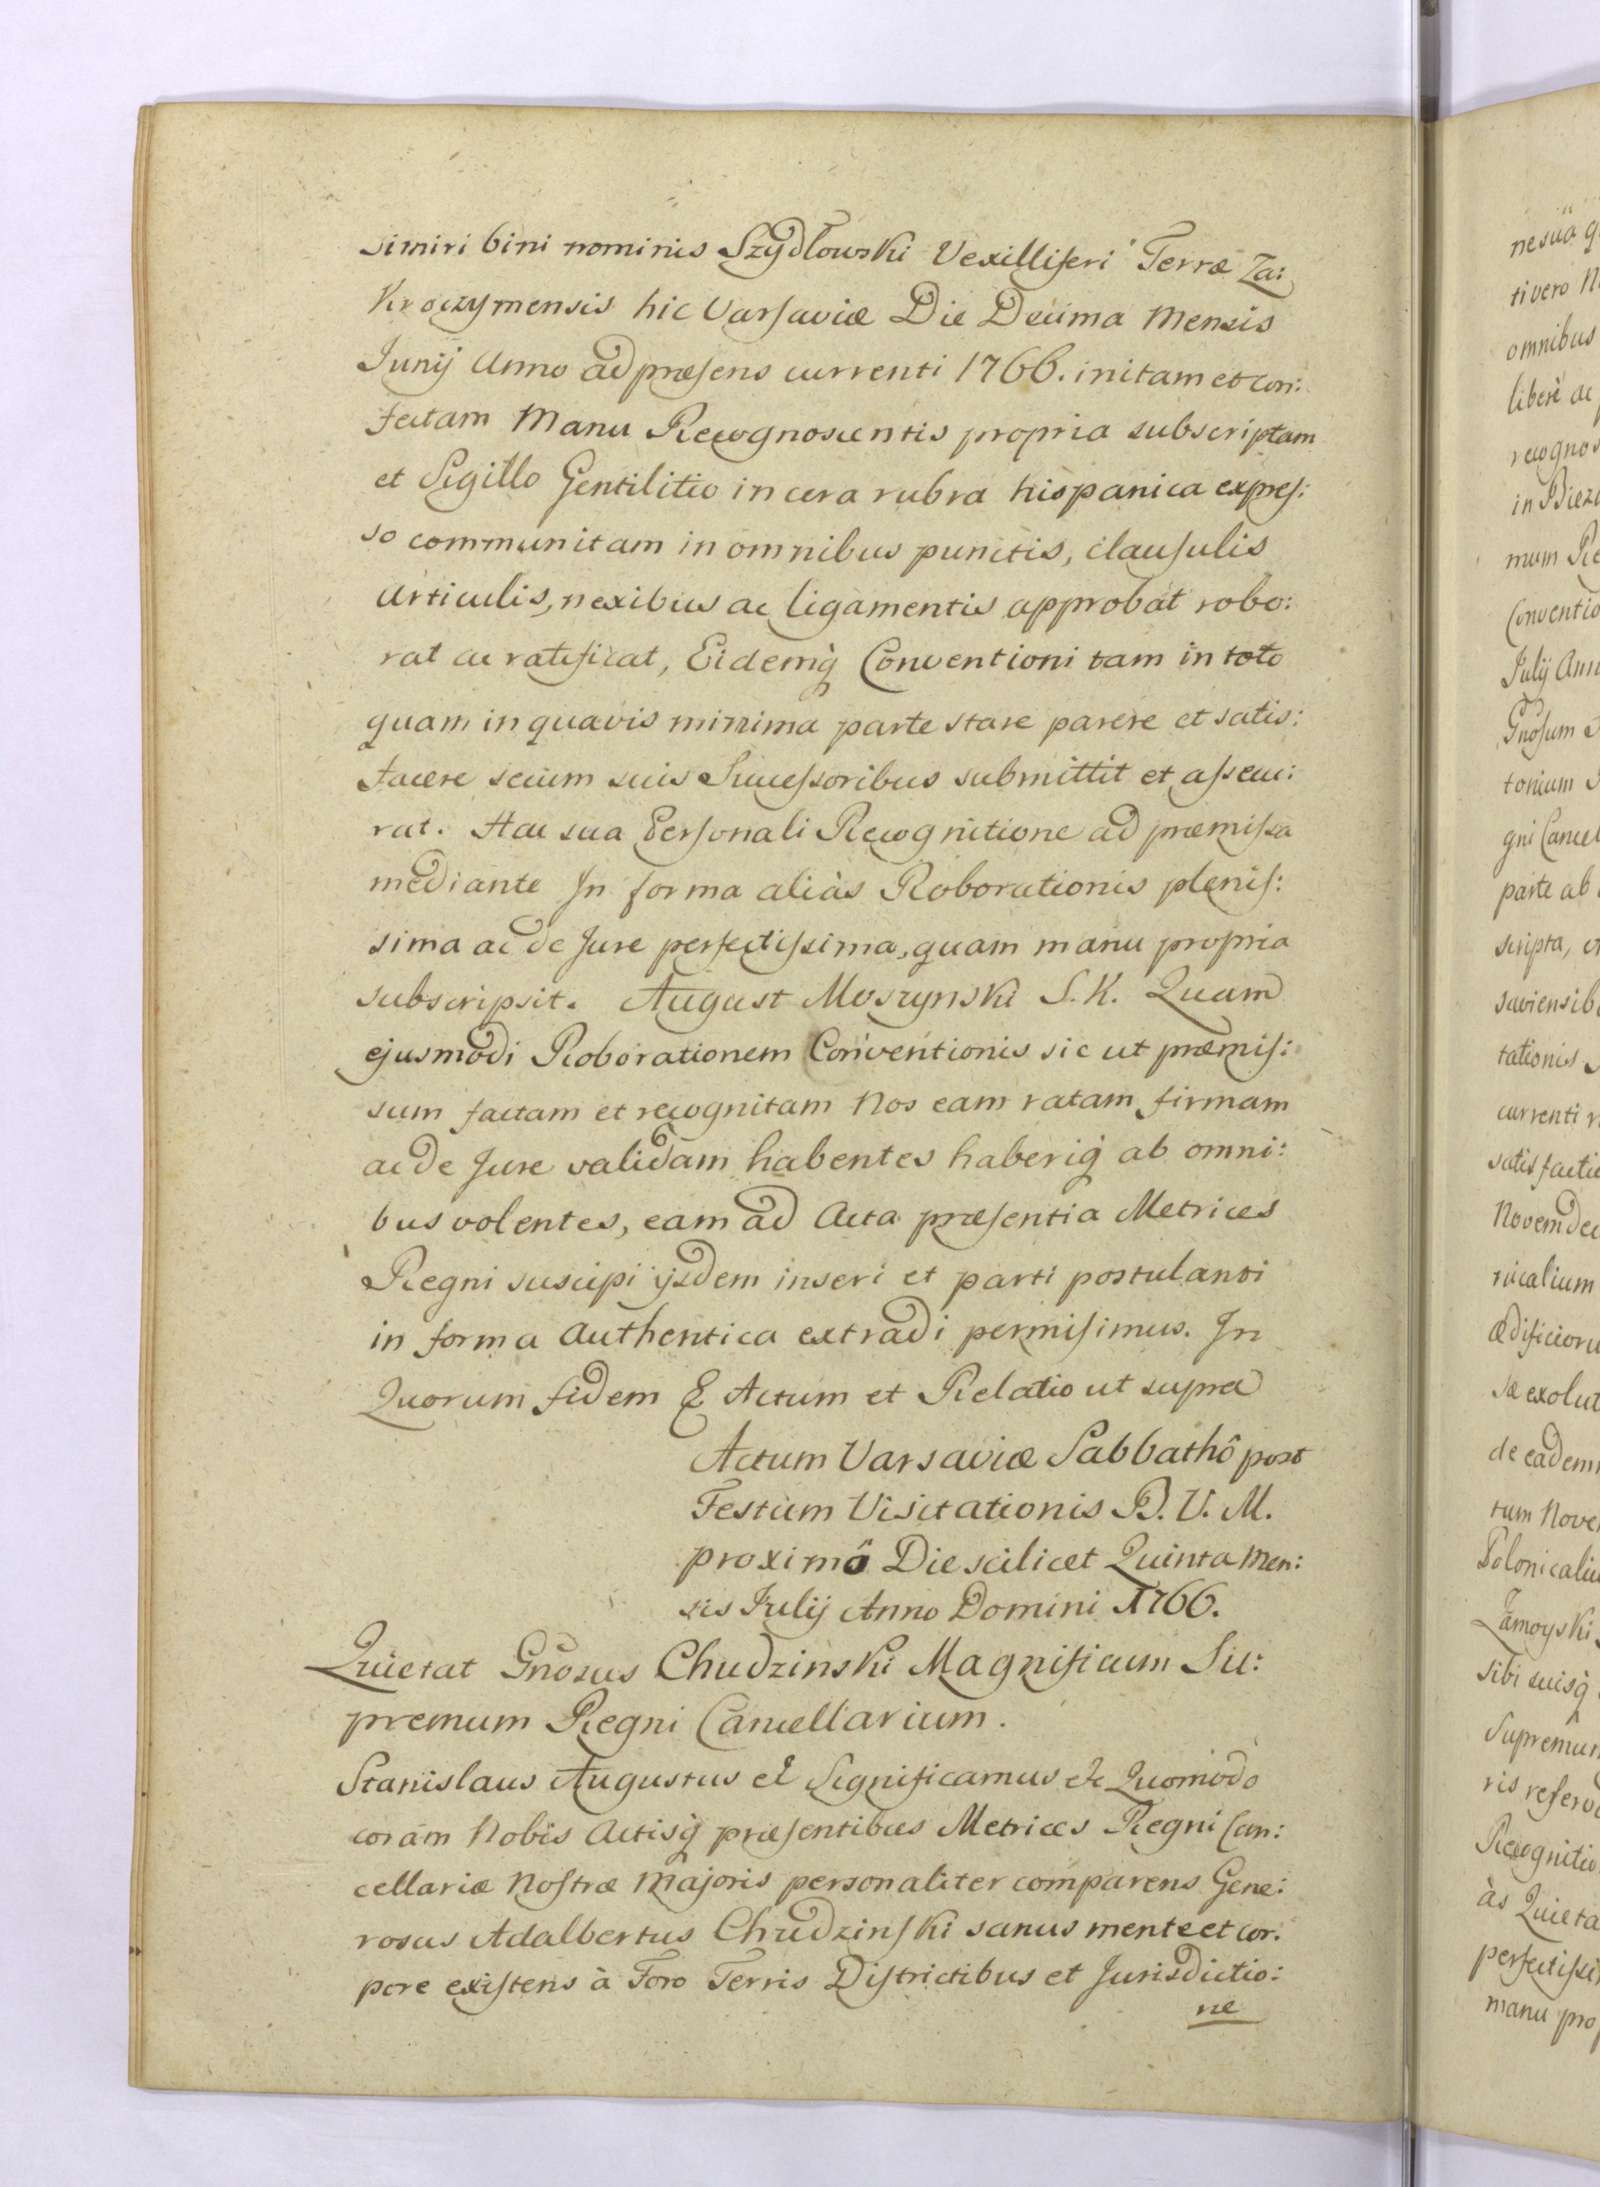 simiri bini nominis Szydłowski Vexilliferi Terræ Za:
kroczymensis hic Varsaviæ Die Decima Mensis
Junij Anno ad præsens currenti 1766. initam et con:
fectam Manu Recognoscentis propria subscriptam
et Sigillo Gentilitio in cera rubra hispanica expres:
so communitam in omnibus punctis, clausulis
articulis, nexibus ac ligamentis approbat robo:
rat ac ratificat, Eidemq̃ Conventioni tam in toto
quam in quavis minima parte stare parere et satis:
facere secum suis Successoribus submittit et assecu:
rat. Hac sua Personali Recognitione ad præmissa
mediante In forma aliàs Roborationis plenis:
sima ac de Jure perfectissima, quam manu propria
subscripsit. August Moszynski S. K. Quam
ejusmodi Roborationem Conventionis sic ut præmis:
sum factam et recognitam Nos eam ratam firmam
ac de Jure validam habentes haberiq̃ ab omni:
bus volentes, eam ad Acta præsentia Metrices
Regni suscipi ijsdem inseri et parti postulanti
in forma Authentica extradi permisimus. In
Quorum fidem & Actum et Relatio ut supra
Actum Varsaviæ Sabbathô post
Festum Visitationis B. V. M.
proximô Die scilicet Quinta Men:
sis Julij Anno Domini 1766.
Quietat Gnosus Chudzinski Magnificum Su:
premum Regni Cancellarium.
Stanislaus Augustus & Significamus & Quomodo
coram Nobis Actisq̃ præsentibus Metrices Regni Can:
cellariæ Nostræ Majoris personaliter comparens Gene:
rosus Adalbertus Chudzinski sanus mente et cor.
pore existens à Foro Terris Districtibus et Jurisdictio:
ne
nesua
tivero
omnibus
liberè ac
recognos
in
mum
Conventio
Julij Ann
Gnosum
tonium
gni Cancel
parte ab
scripta,
saviensib
tationis
currenti
satisfactio
Novemdec
ricalium
ædificioru
sæ exolut
de eadem
tum Nove
Polonicaliu
Zamoyski
sibi suisq̃
Supremum
ris reserva
Recognitio
às Quieta
perfectissi
manu pro